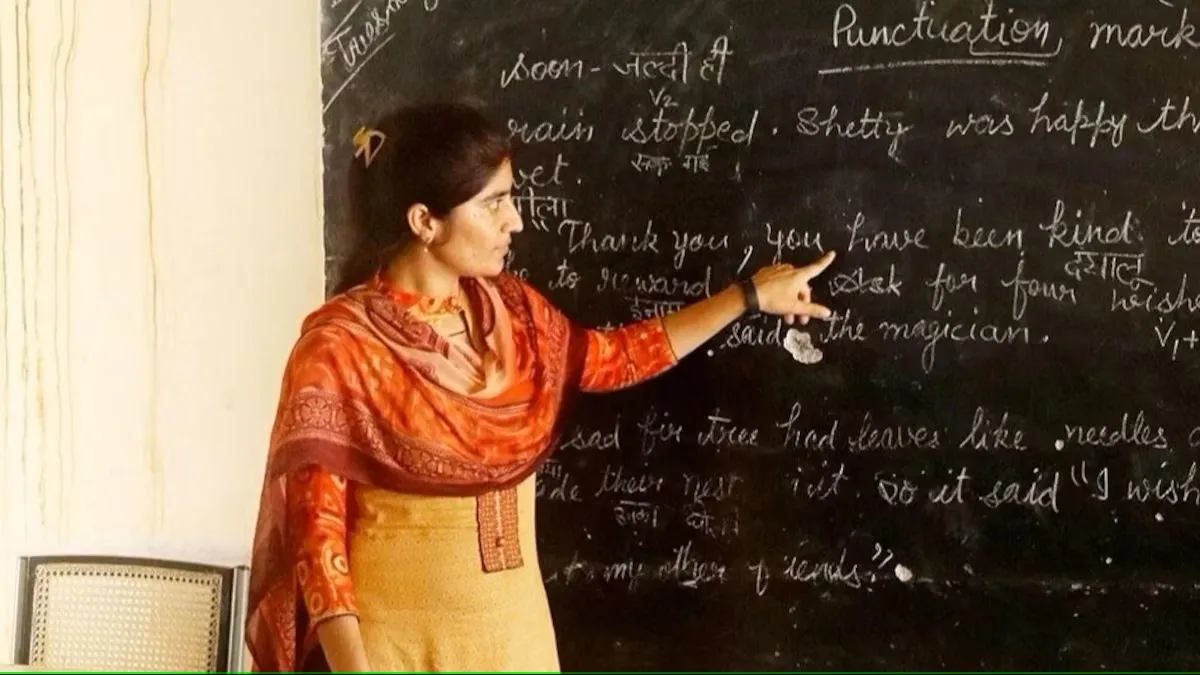 Tuesday
Punctuation mark
soon - जल्दी ही
V2
rain stopped. Shetty was happy th
रूक गई
wet.
गीला
"Thank you, you have been kind to
दयालू
to reward Ask for four wish
ईनाम
said the magician. V1+
sad fir tree had leaves like needles
their nest it. So it said "I wish
उनका
my other friends."